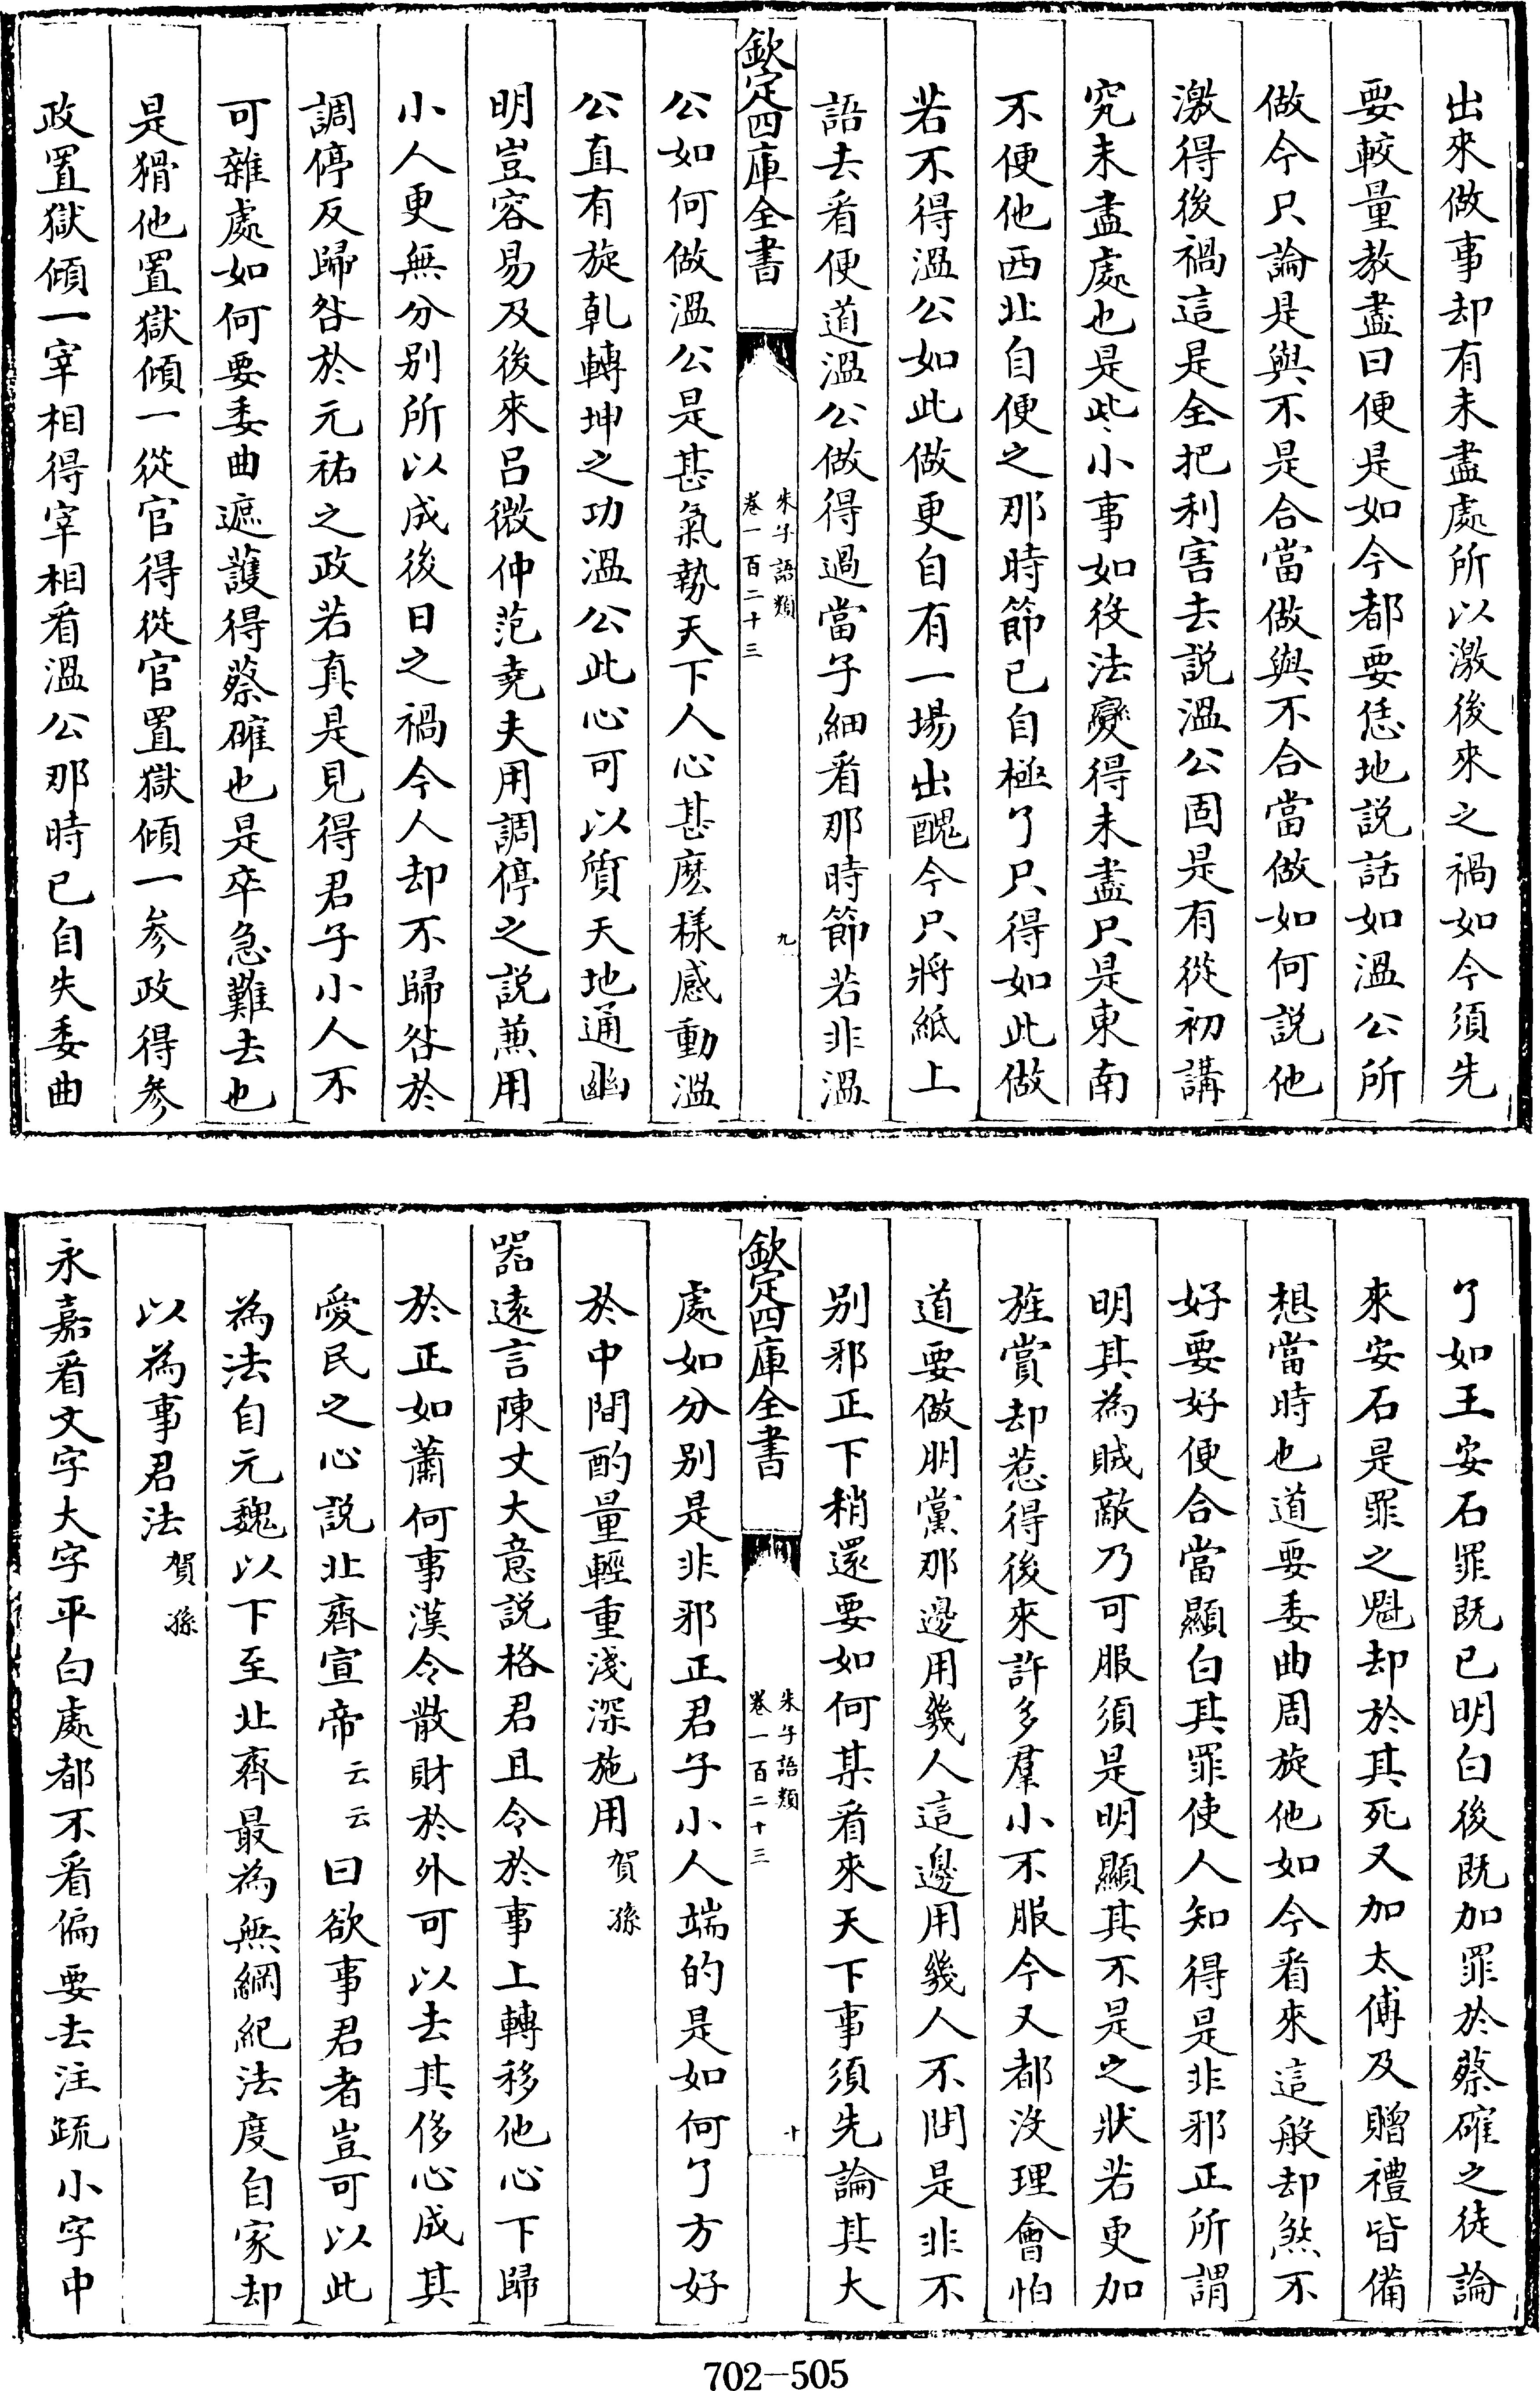 出來做事却有未盡處所以激後來之禍如今須先
要較量教盡曰便是如今都要恁地説話如溫公所
做今只論是與不是合當做與不合當做如何説他
激得後禍這是全把利害去説溫公固是有從初講
究未盡處也是些小事如役法變得未盡只是東南
不便他西北自便之那時節已自極了只得如此做
若不得溫公如此做更自有一場出醜今只將紙上
語去看便道溫公做得過當子細看那時節若非溫
欽定四庫全書
朱子語類
卷一百二十三
九
公如何做溫公是甚氣勢天下人心甚麽樣感動溫
公直有旋乹轉坤之功溫公此心可以質天地通幽
明豈容易及後來呂微仲范堯夫用調停之説兼用
小人更無分别所以成後日之禍今人却不歸咎於
調停反歸咎於元祐之政若真是見得君子小人不
可雜處如何要委曲遮護得蔡確也是卒急難去也
是猾他置獄傾一從官得從官置獄傾一參政得參
政置獄傾一宰相得宰相看溫公那時已自失委曲
了如王安石罪既已明白後既加罪於蔡確之徒論
來安石是罪之魁却於其死又加太傅及贈禮皆備
想當時也道要委曲周旋他如今看來這般却煞不
好要好便合當顯白其罪使人知得是非邪正所謂
明其為賊敵乃可服須是明顯其不是之狀若更加
旌賞却惹得後來許多羣小不服今又都没理會怕
道要做朋黨那邊用幾人這邊用幾人不問是非不
别邪正下稍還要如何某看來天下事須先論其大
欽定四庫全書
朱子語類
卷一百二十三
十
處如分别是非邪正君子小人端的是如何了方好
於中間酌量輕重淺深施用賀孫
器遠言陳丈大意説格君且令於事上轉移他心下歸
於正如蕭何事漢令散財於外可以去其侈心成其
愛民之心說北齊宣帝云云曰欲事君者豈可以此
為法自元魏以下至北齊最為無綱紀法度自家却
以為事君法賀孫
永嘉看文字大字平白處都不看偏要去注疏小字中
702-505